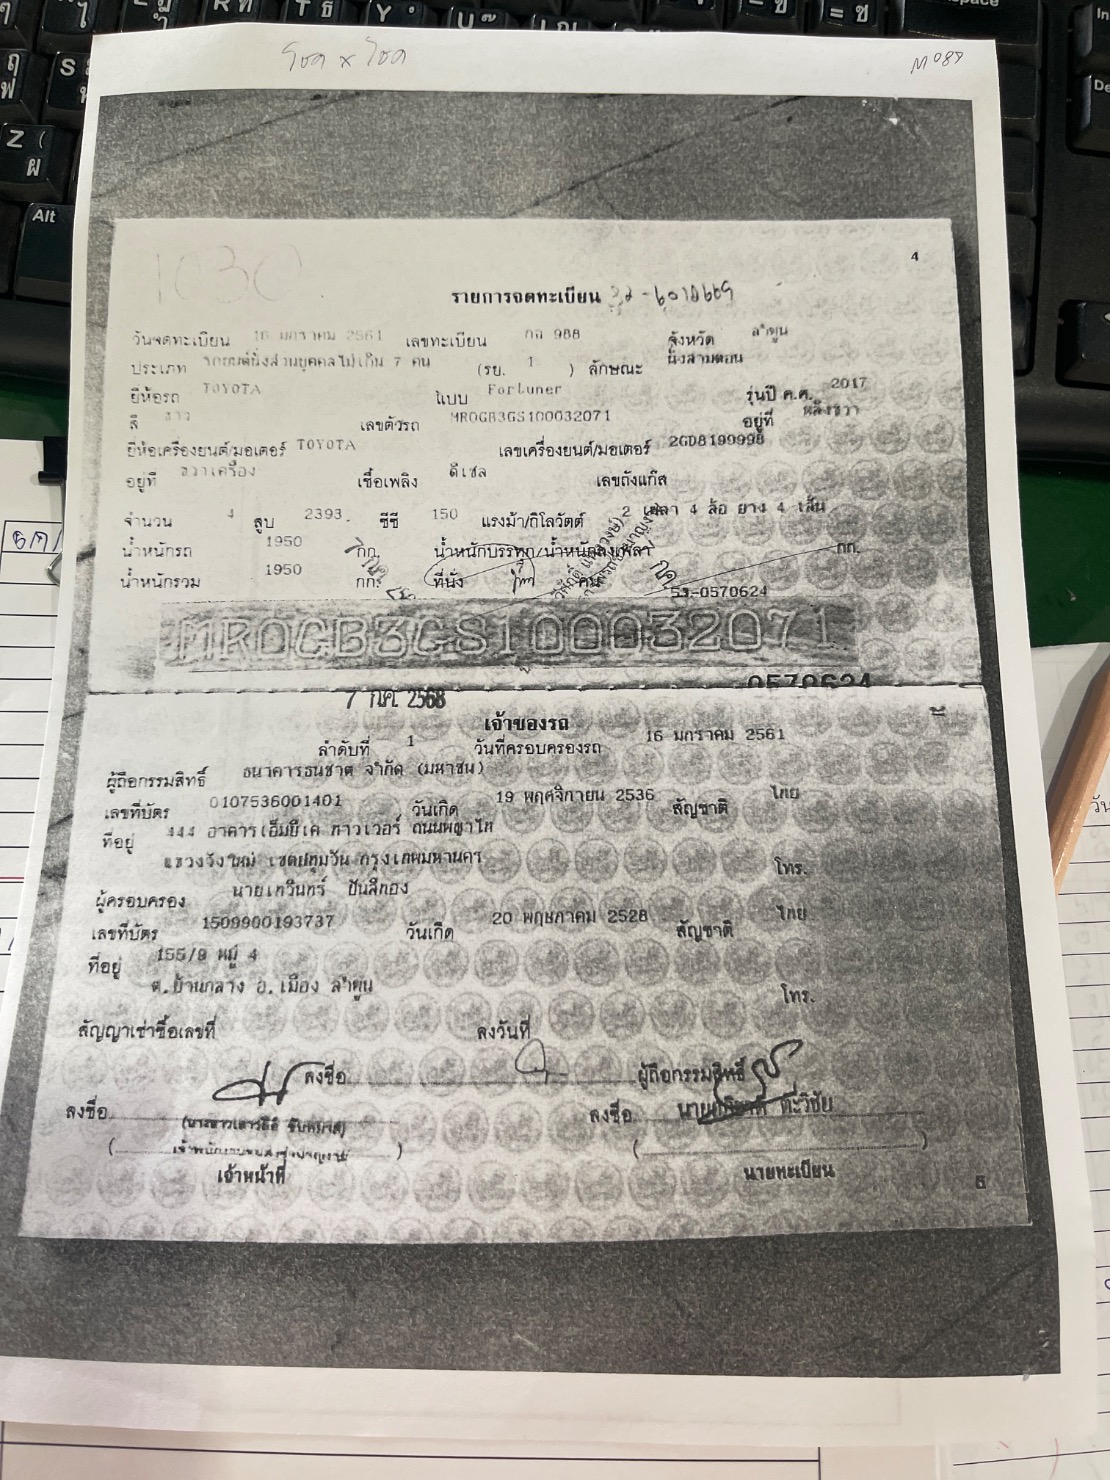 โชค x โชค
M 089
1030
4
รายการจดทะเบียน
วันจดทะเบียน 16 มกราคม 2561 เลขทะเบียน กล 988 จังหวัด ลำพูน
ประเภท รถยนต์นั่งส่วนบุคคลไม่เกิน 7 คน (รย. 1 ) ลักษณะ นั่งสามตอน
ยี่ห้อรถ TOYOTA แบบ Fortuner รุ่นปี ค.ศ. 2017
สี ขาว เลขตัวรถ MR0GB3GS100032071 อยู่ที่ หลังขวา
ยี่ห้อเครื่องยนต์/มอเตอร์ TOYOTA เลขเครื่องยนต์/มอเตอร์ 2GD8199998
อยู่ที่ ขวาเครื่อง เชื้อเพลิง ดีเซล เลขถังแก๊ส
จำนวน 4 สูบ 2393. ซีซี 150 แรงม้า/กิโลวัตต์ 2 เพลา 4 ล้อ ยาง 4 เส้น
น้ำหนักรถ 1950 กก. น้ำหนักบรรทุก/น้ำหนักลงเพลา กก.
น้ำหนักรวม 1950 กก. ที่นั่ง คน
53-0570624
MR0GB3GS100032071
0570624
7 กค. 2568
เจ้าของรถ
ลำดับที่ 1 วันที่ครอบครองรถ 16 มกราคม 2561
ผู้ถือกรรมสิทธิ์ ธนาคารธนชาต จำกัด (มหาชน)
เลขที่บัตร 0107536001401 วันเกิด 19 พฤศจิกายน 2536 สัญชาติ ไทย
ที่อยู่ 444 อาคารเอ็มบีเค ทาวเวอร์ ถนนพญาไท
แขวงวังใหม่ เขตปทุมวัน กรุงเทพมหานคร โทร.
ผู้ครอบครอง นายเทวินทร์ ปันสีทอง
เลขที่บัตร 1509900193737 วันเกิด 20 พฤษภาคม 2528 สัญชาติ ไทย
ที่อยู่ 155/9 หมู่ 4
ต.บ้านกลาง อ.เมือง ลำพูน โทร.
สัญญาเช่าซื้อเลขที่ ลงวันที่
ลงชื่อ ผู้ถือกรรมสิทธิ์
ลงชื่อ ลงชื่อ ตะวิชัย
เจ้าหน้าที่ นายทะเบียน
5